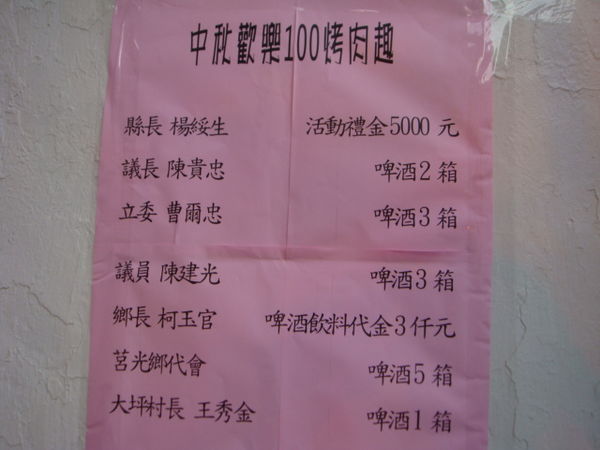 中秋歡樂100烤肉趣
縣長 楊綏生 活動禮金5000 元
議長 陳貴忠 啤酒2 箱
立委 曹爾忠 啤酒3 箱
議員 陳建光 啤酒3 箱
鄉長 柯玉官 啤酒飲料代金3仟元
莒光鄉代會 啤酒5 箱
大坪村長 王秀金 啤酒1 箱